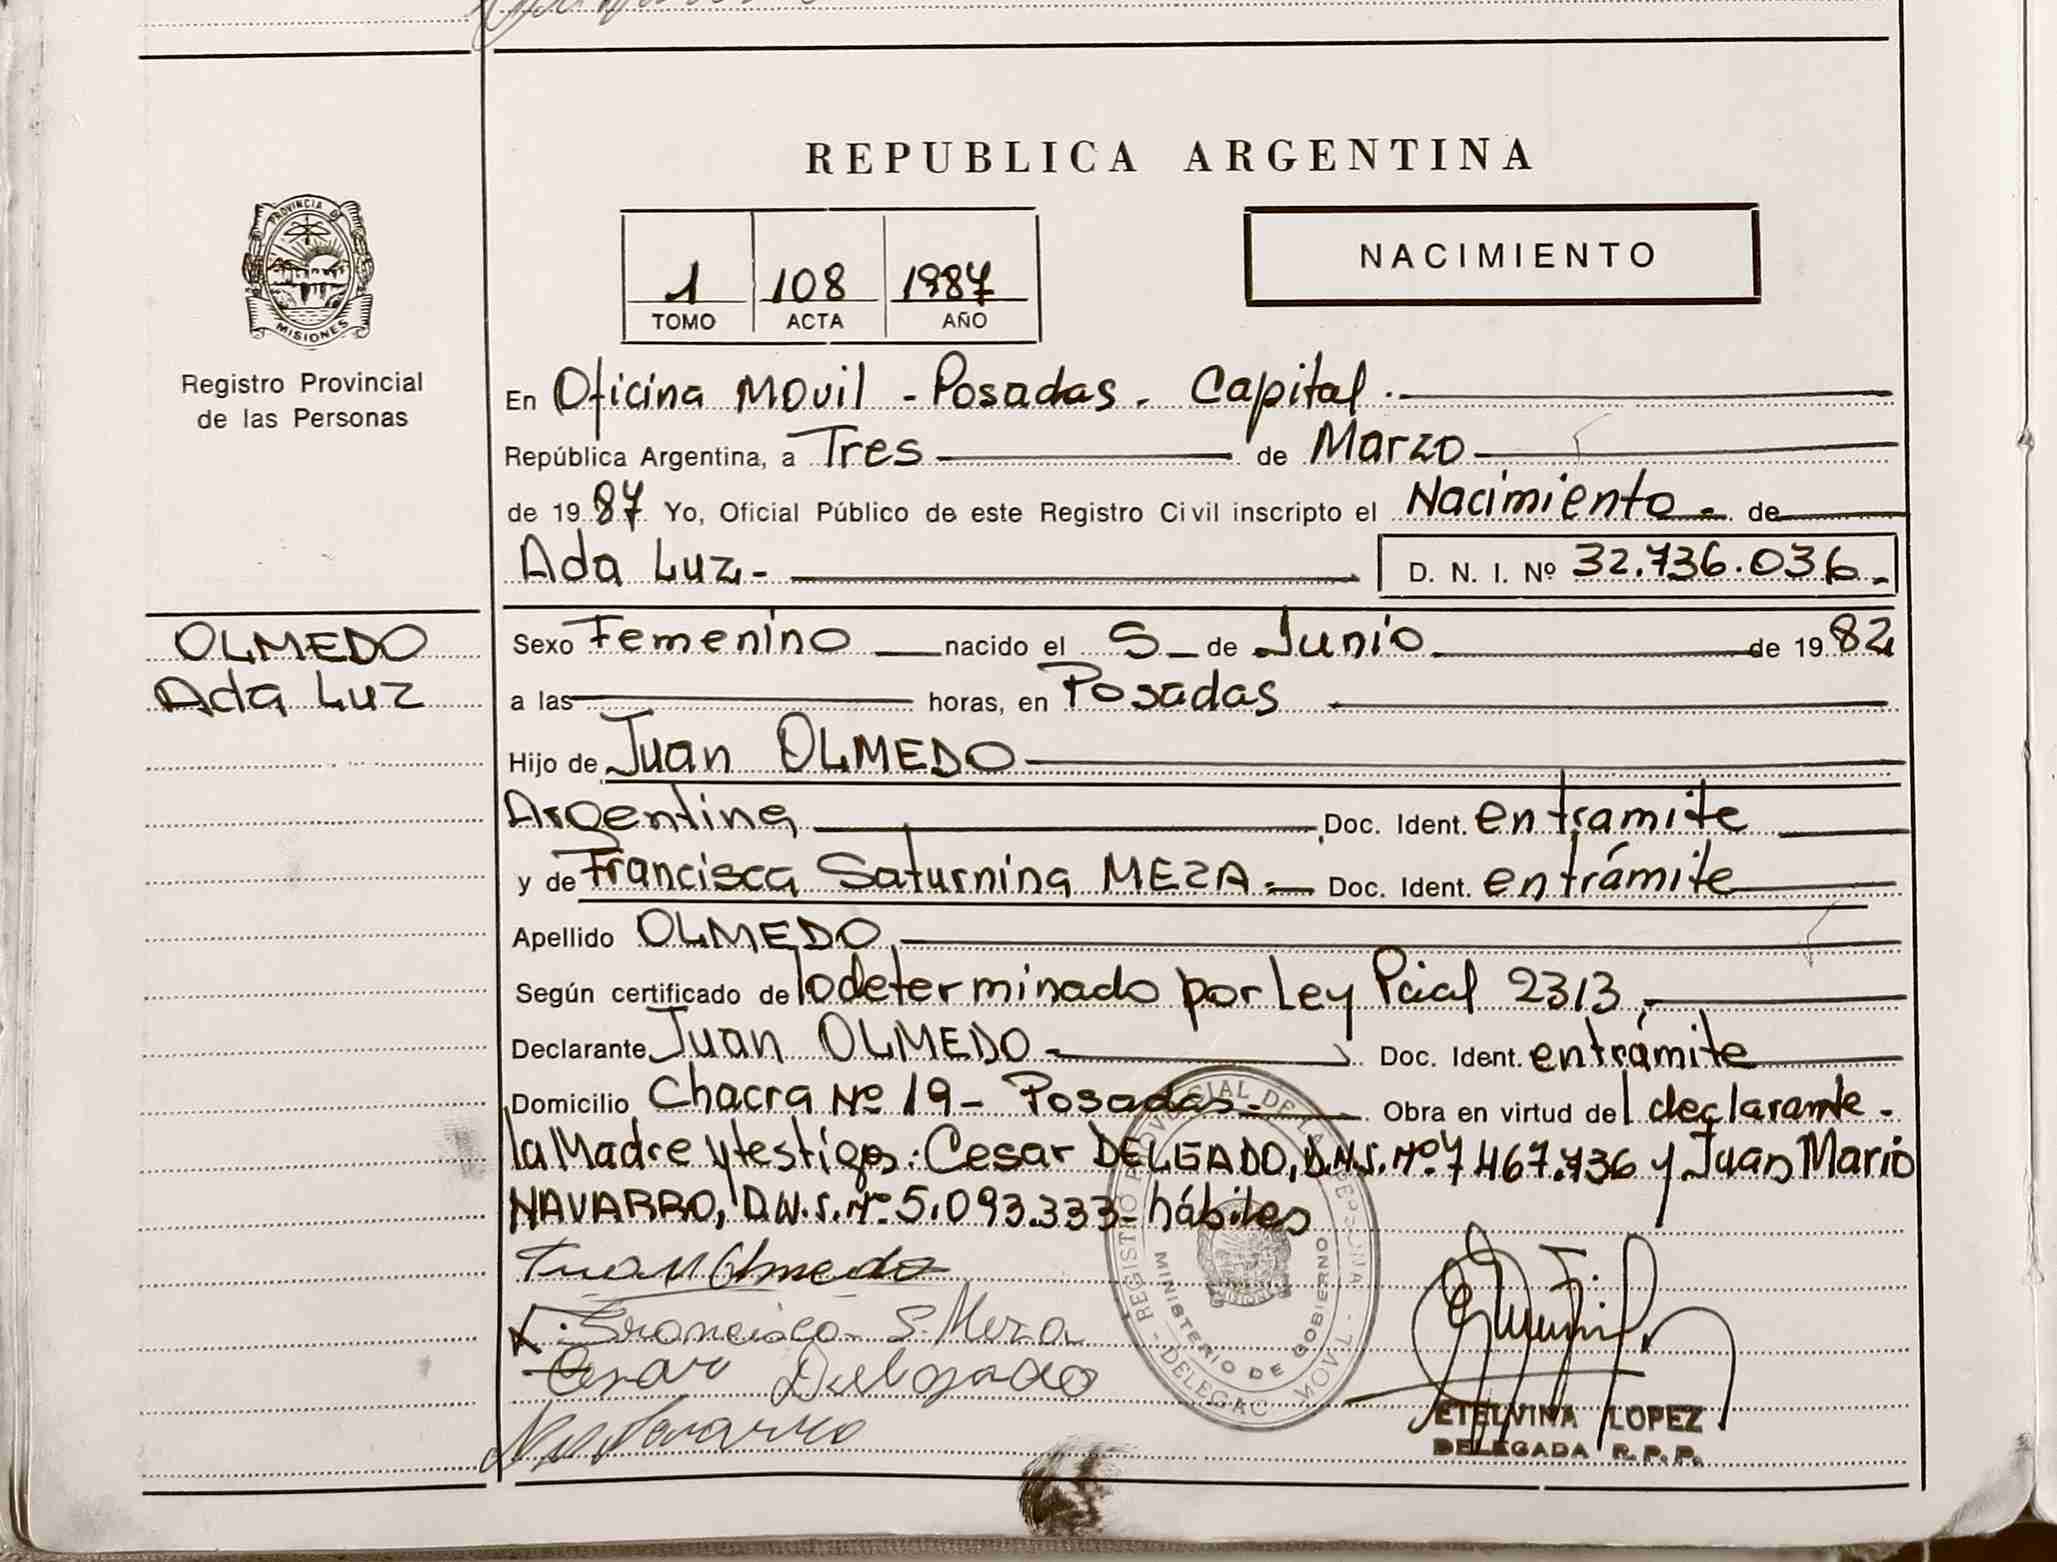 REPUBLICA ARGENTINA
NACIMIENTO
1 108 1987
TOMO ACTA AÑO
PROVINCIA D
MISIONES
Registro Provincial
de las Personas
En Oficina Movil - Posadas - Capital.
República Argentina, a Tres de Marzo
de 1987 Yo, Oficial Público de este Registro Civil inscripto el Nacimiento - de
Ada Luz - D. N. I. Nº 32.736.036.-
OLMEDO
Ada Luz
Sexo Femenino nacido el 5 de Junio de 1982
a las horas, en Posadas
Hijo de Juan OLMEDO
Argentina Doc. Ident. en tramite
y de Francisca Saturnina MEZA.- Doc. Ident. en trámite
Apellido OLMEDO,
Según certificado de lo determinado por Ley Pcial 2313.-
Declarante Juan OLMEDO - Doc. Ident. en trámite
Domicilio Chacra Nº 19 - Posadas.- Obra en virtud del declarante -
la Madre y testigos: Cesar DELGADO, D.N.I. Nº 7467.736 y Juan Mario
NAVARRO, D.N.I. Nº 5.093.333 - hábiles
Juan Olmedo
Francisca S. Meza
Cesar Delgado
Navarro
REGISTRO PROVINCIAL DE LAS PERSONAS - DELEGAC MOVIL
MINISTERIO DE GOBIERNO
ETELVINA LOPEZ
DELEGADA R.P.P.